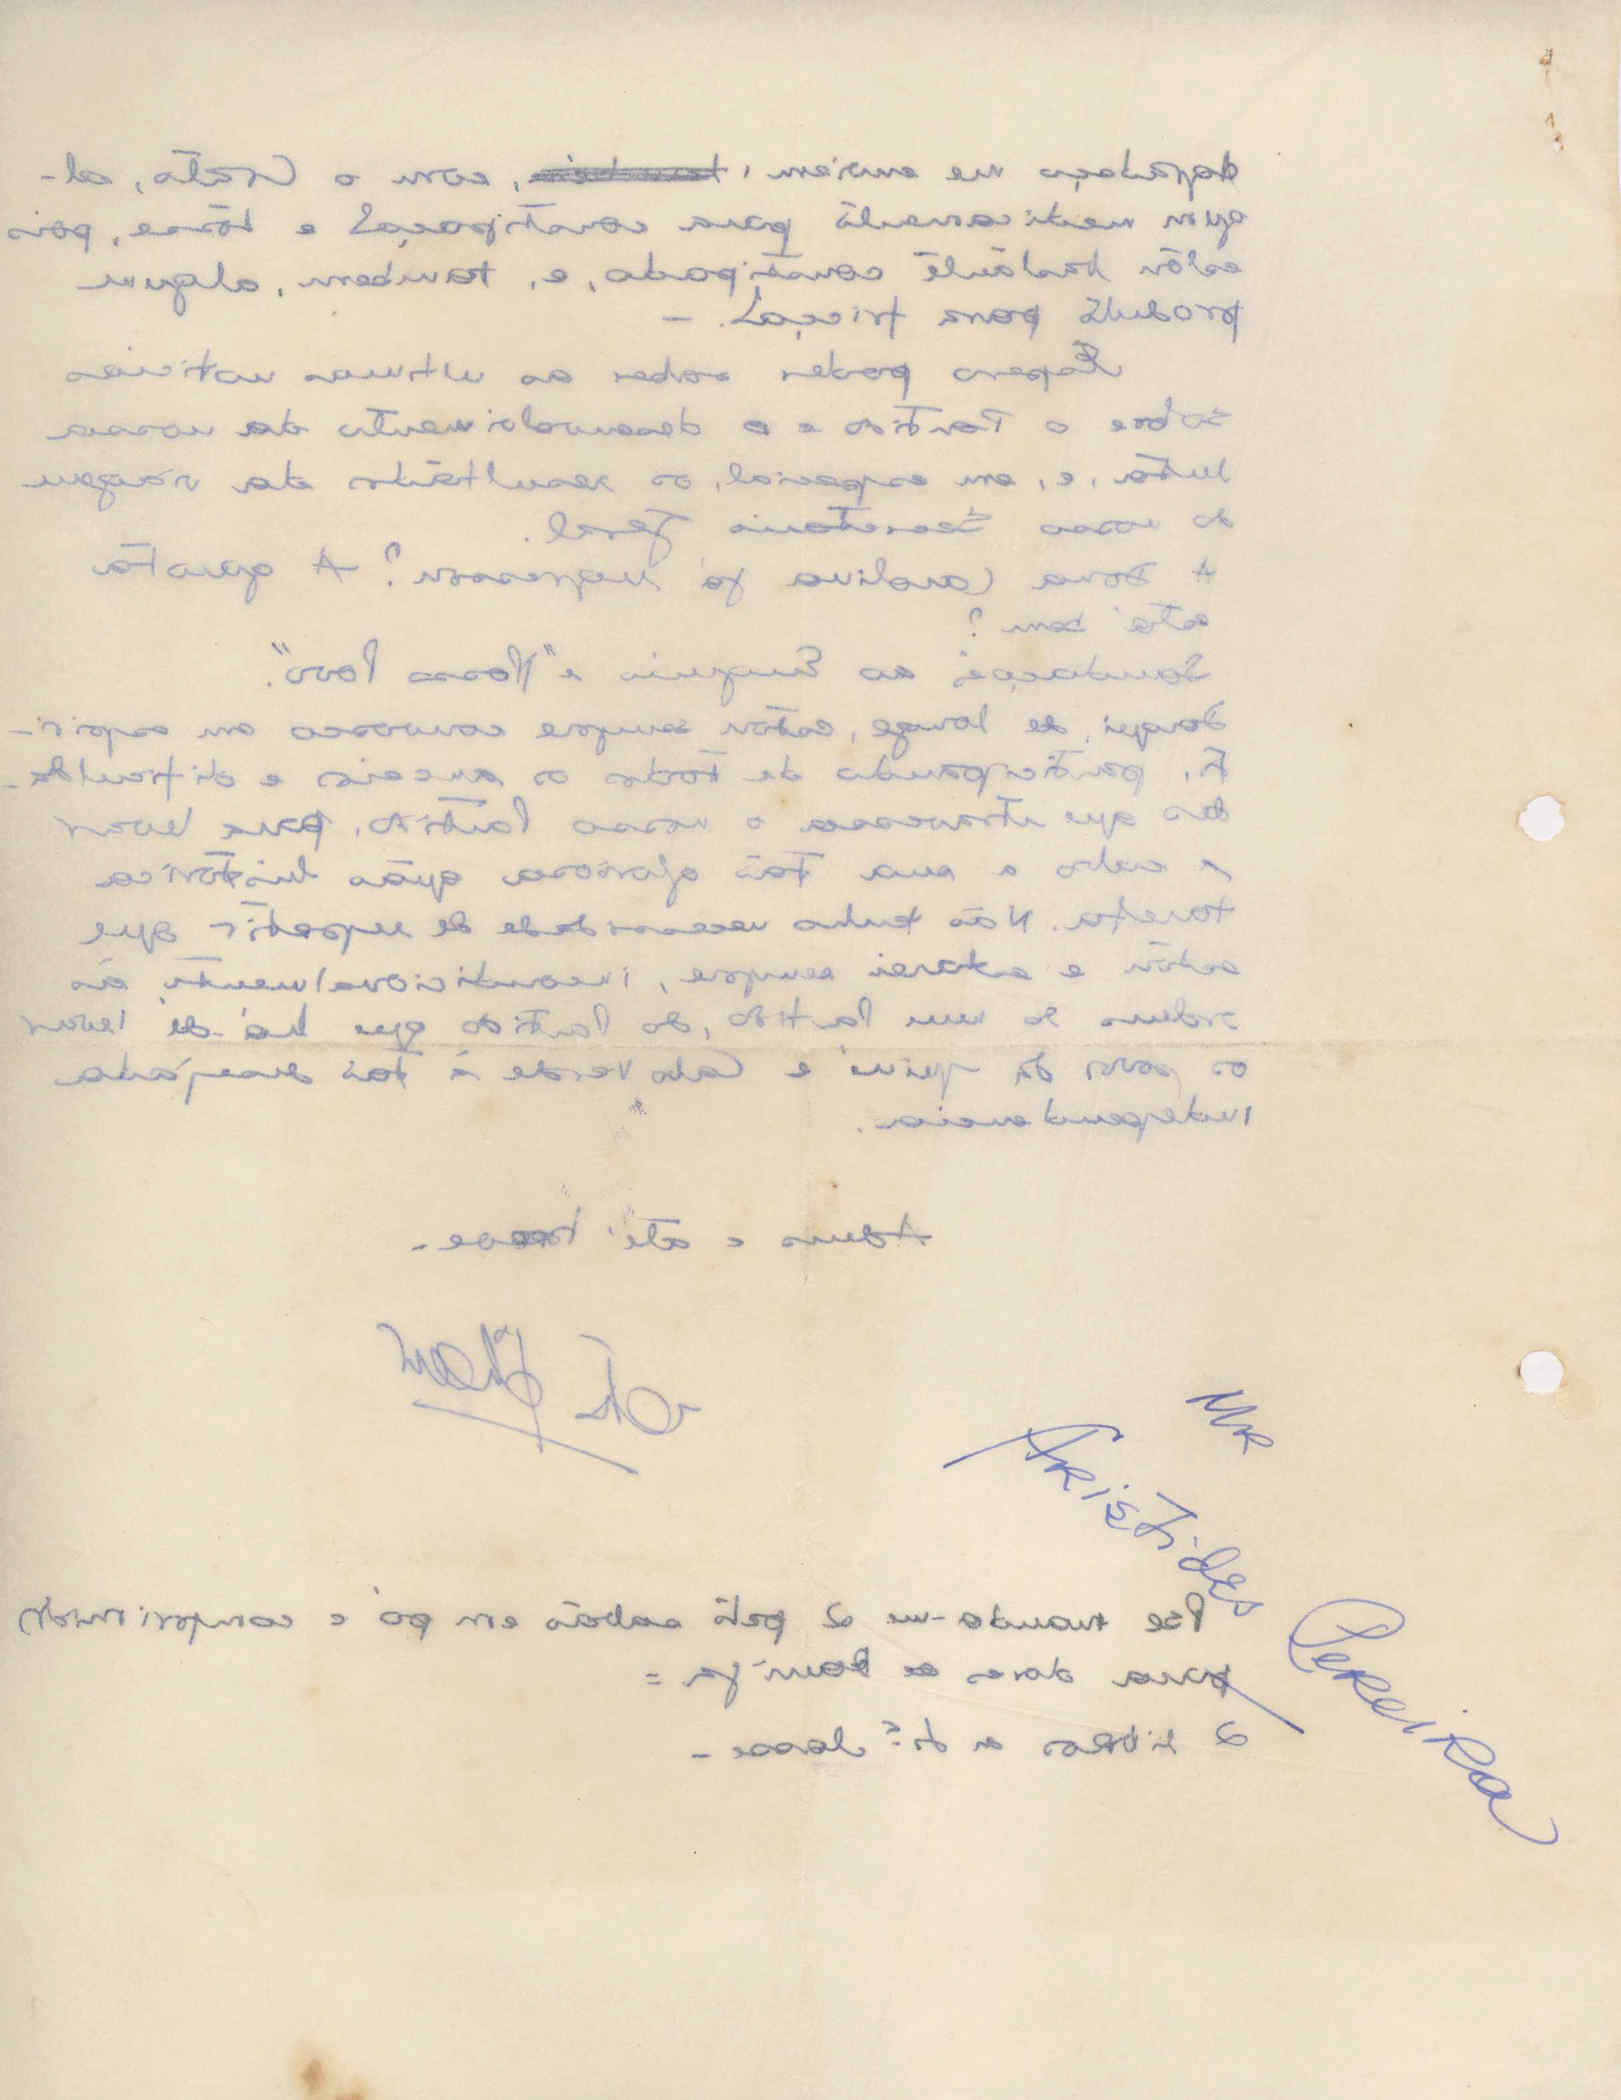 me enviem, com o Crato, al-
gum medicamento para constipação e tosse, pois
estou bastante constipado, e, tambem, algum
produto para fricção. -
Espero poder saber as ultimas noticias
sobre o Partido e o desenvolvimento da nossa
luta, e, em especial, os resultados da viagem
do nosso Secretario Geral.
A Dona Carolina já regressou? A garota
está bem?
Saudações ao Eugenio e "Nosso Povo".
Daqui, de longe, estou sempre convosco em espiri-
to, participando de todos os anceios e dificulda-
des que atravessa o nosso Partido, para levar
a cabo a sua tão gloriosa quão histórica
tarefa. Não tenho necessidade de repetir que
estou e estarei sempre, incondicionalmente, ás
ordens do meu Partido, do Partido que há-de levar
os povos da Guiné e Cabo Verde á tão desejada
independencia.
Adeus e até breve -
Mr
Aristides
Pereira
Pse manda-me 2 pkts sabão em pó e comprimidos
para dores de barriga =
2 livros a 4ª classe -